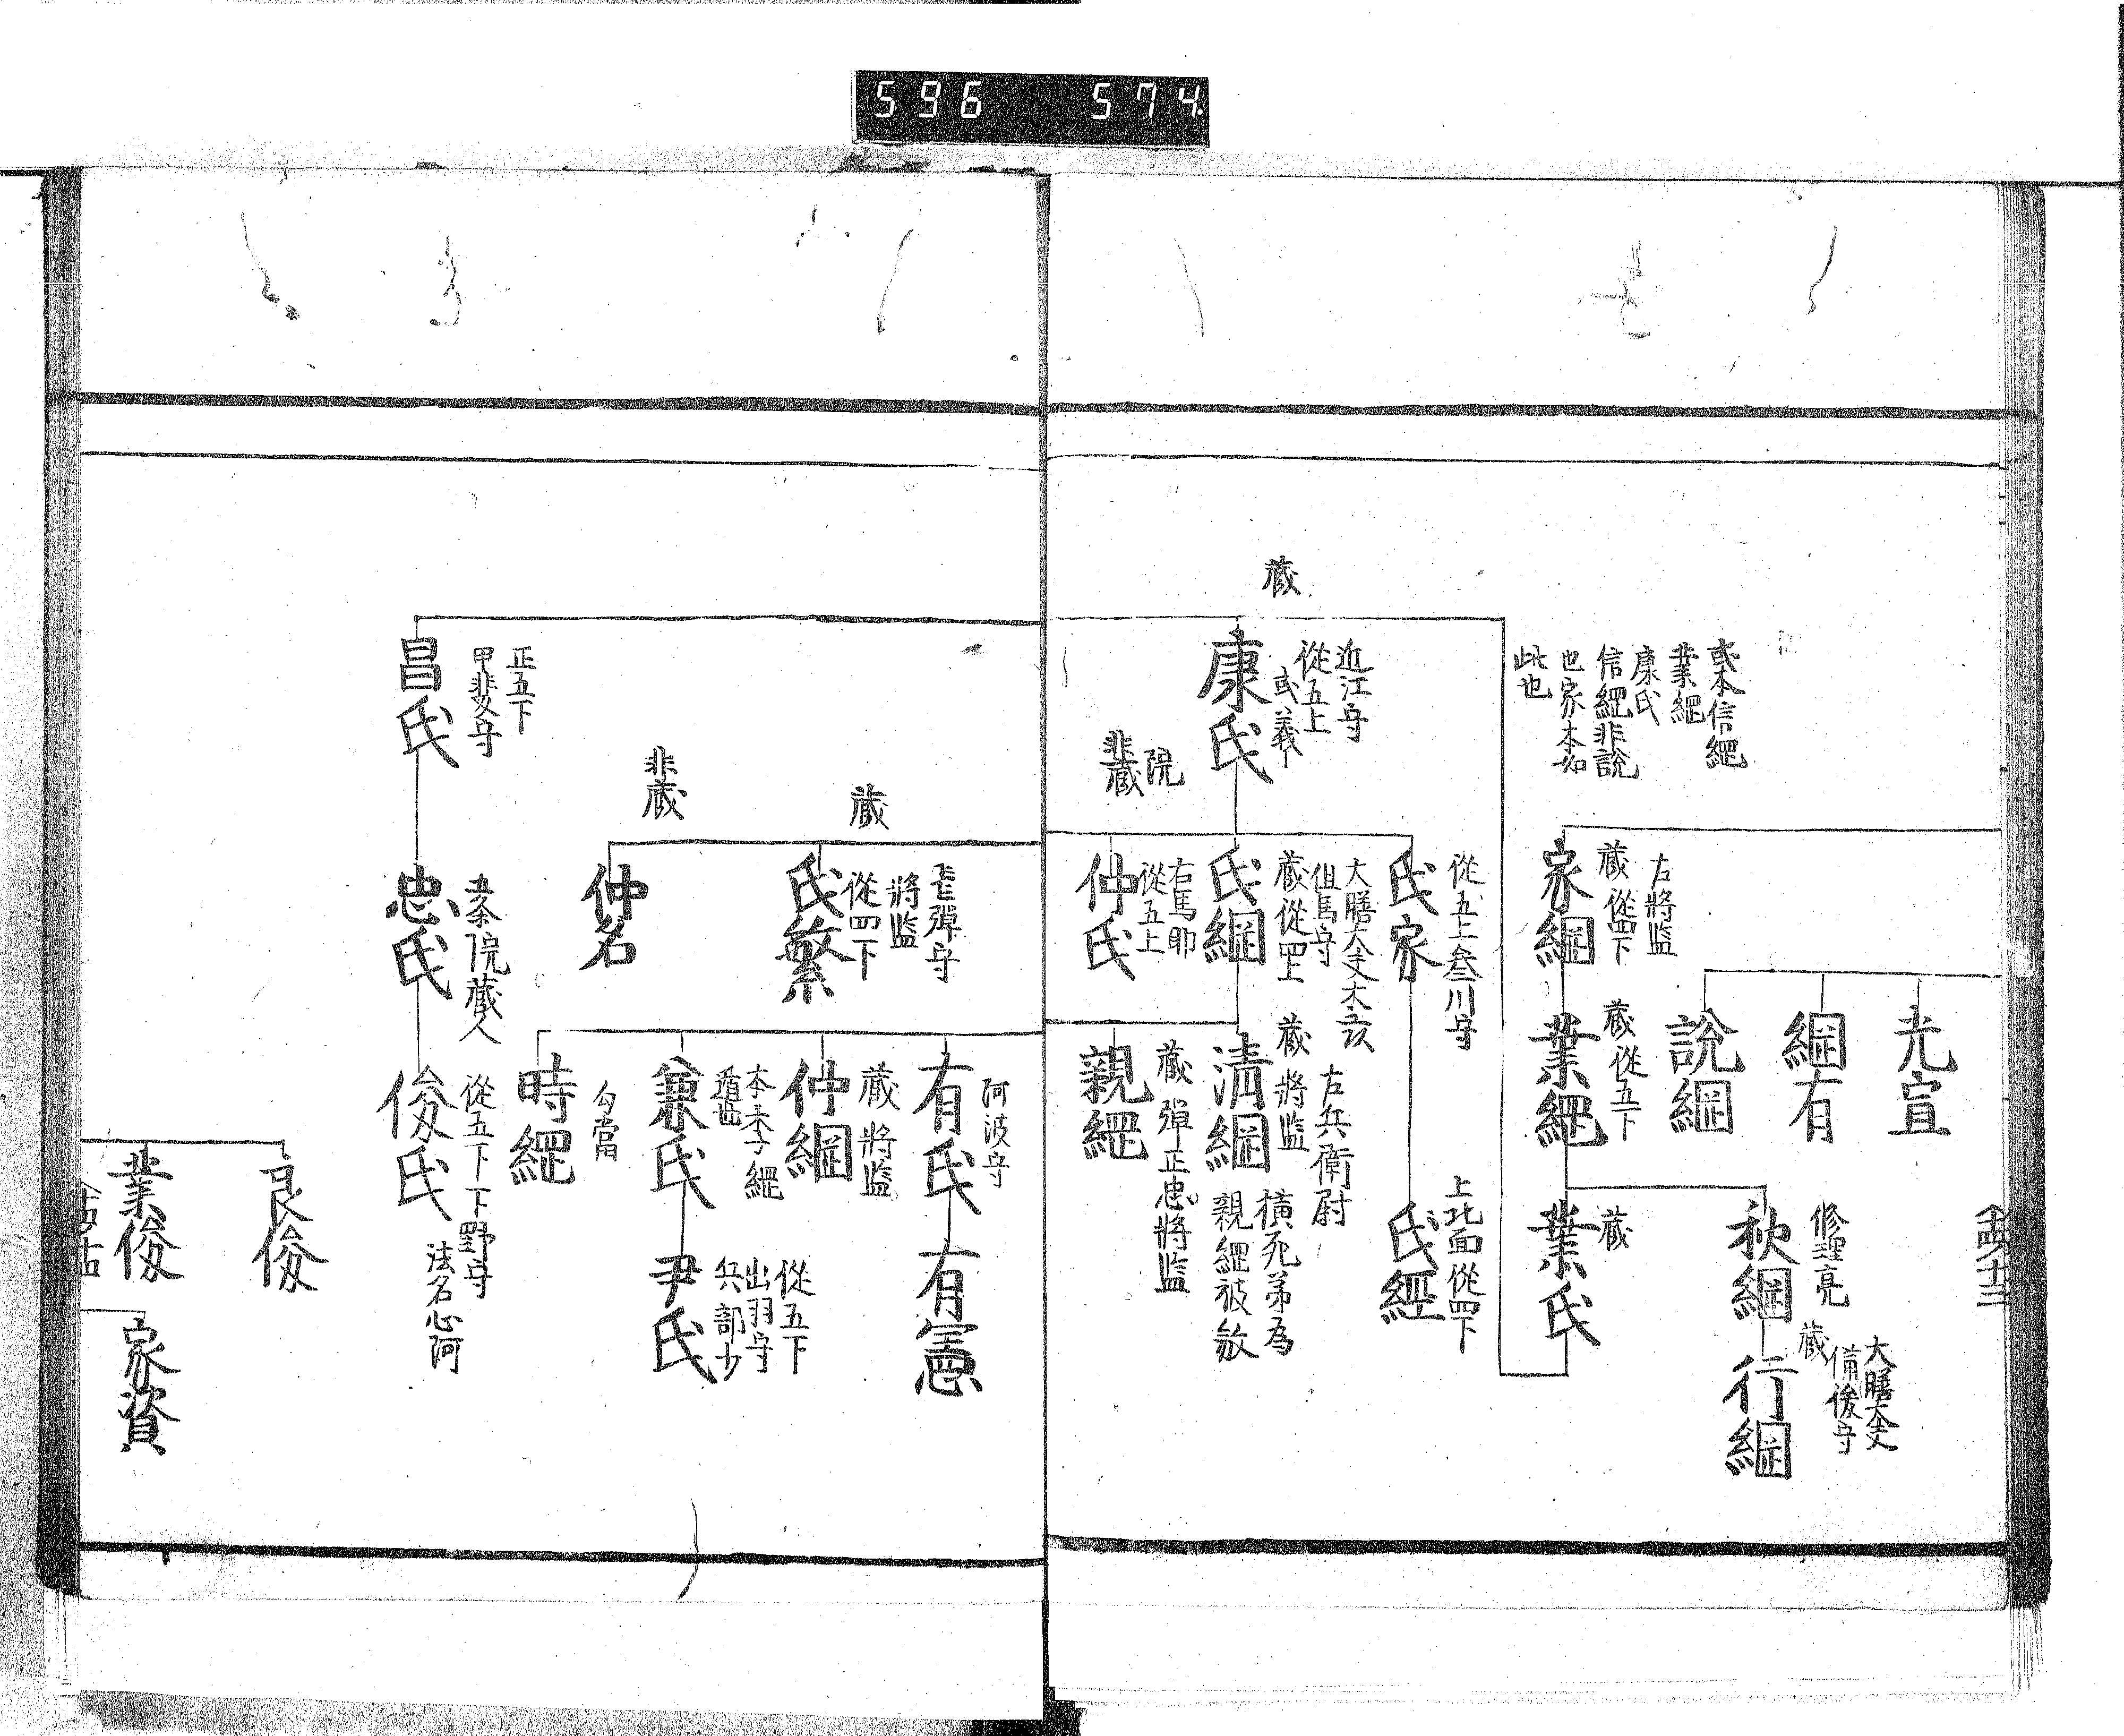 596 574
光宣
綱有
說綱
修理亮
秋綱
大膳大夫
備後守
蔵
行綱
右將監
蔵 從四下
家綱
蔵從五下
業綱
蔵
業氏
或本信綱
業綱
康氏
信綱非說
也家本如
此也
蔵
近江守
從五上
康氏
從五上叄川守
氏家
上北面從四下
氏經
大膳大夫
但馬守
蔵從四上
氏綱
左兵衛尉
蔵將監
清綱
橫死弟為
親綱被
院
非蔵
右馬
從五上
仲氏
蔵 彈正忠將監
親綱
蔵
守
將監
從四下
氏繁
非蔵
仲名
阿波守
有氏
有憲
蔵將監
仲綱
兼氏
從五下
出羽守
兵部少
尹氏
勾當
時綱
正五下
甲斐守
昌氏
五条院蔵人
忠氏
從五下下野守
法名心阿
俊氏
良俊
業俊
家資